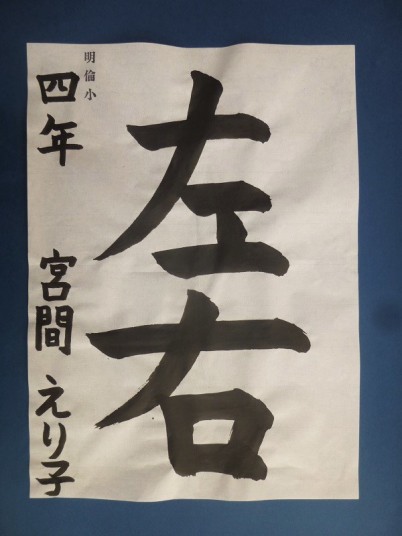 左右
明倫小
四年 宮間 えり子